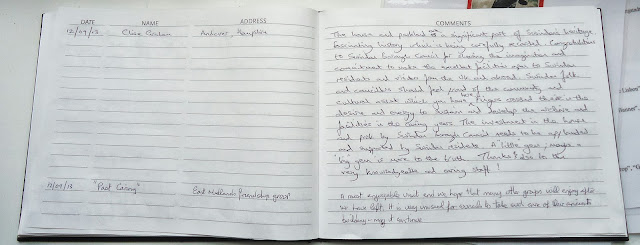 DATE NAME ADDRESS
12/09/13 Clive Andover, Hampshire
17/09/13 "Past Caring" East Midlands friendship group
COMMENTS
The house and parkland are a significant part of Swindon's heritage
fascinating history which is being carefully recorded. Congratulations
to Swindon Borough Council for sharing the imagination and
commitment to make the excellent facilities open to Swindon
residents and visitors from the UK and abroad. Swindon folk
and councillors should feel proud of this community and
cultural asset which you have here. Fingers crossed there is the
desire and energy to sustain and develop the archive and
facilities in the coming years. The investment in the house
and park by Swindon Borough Council needs to be applauded
and supported by Swindon residents. A 'little gem', maybe a
'big gem' is more to the truth. Thanks also to the
very knowledgeable and caring staff!
A most enjoyable visit and we hope that many other groups will enjoy after
we have left. It is very unusual for councils to take such care of their
buildings - may it continue